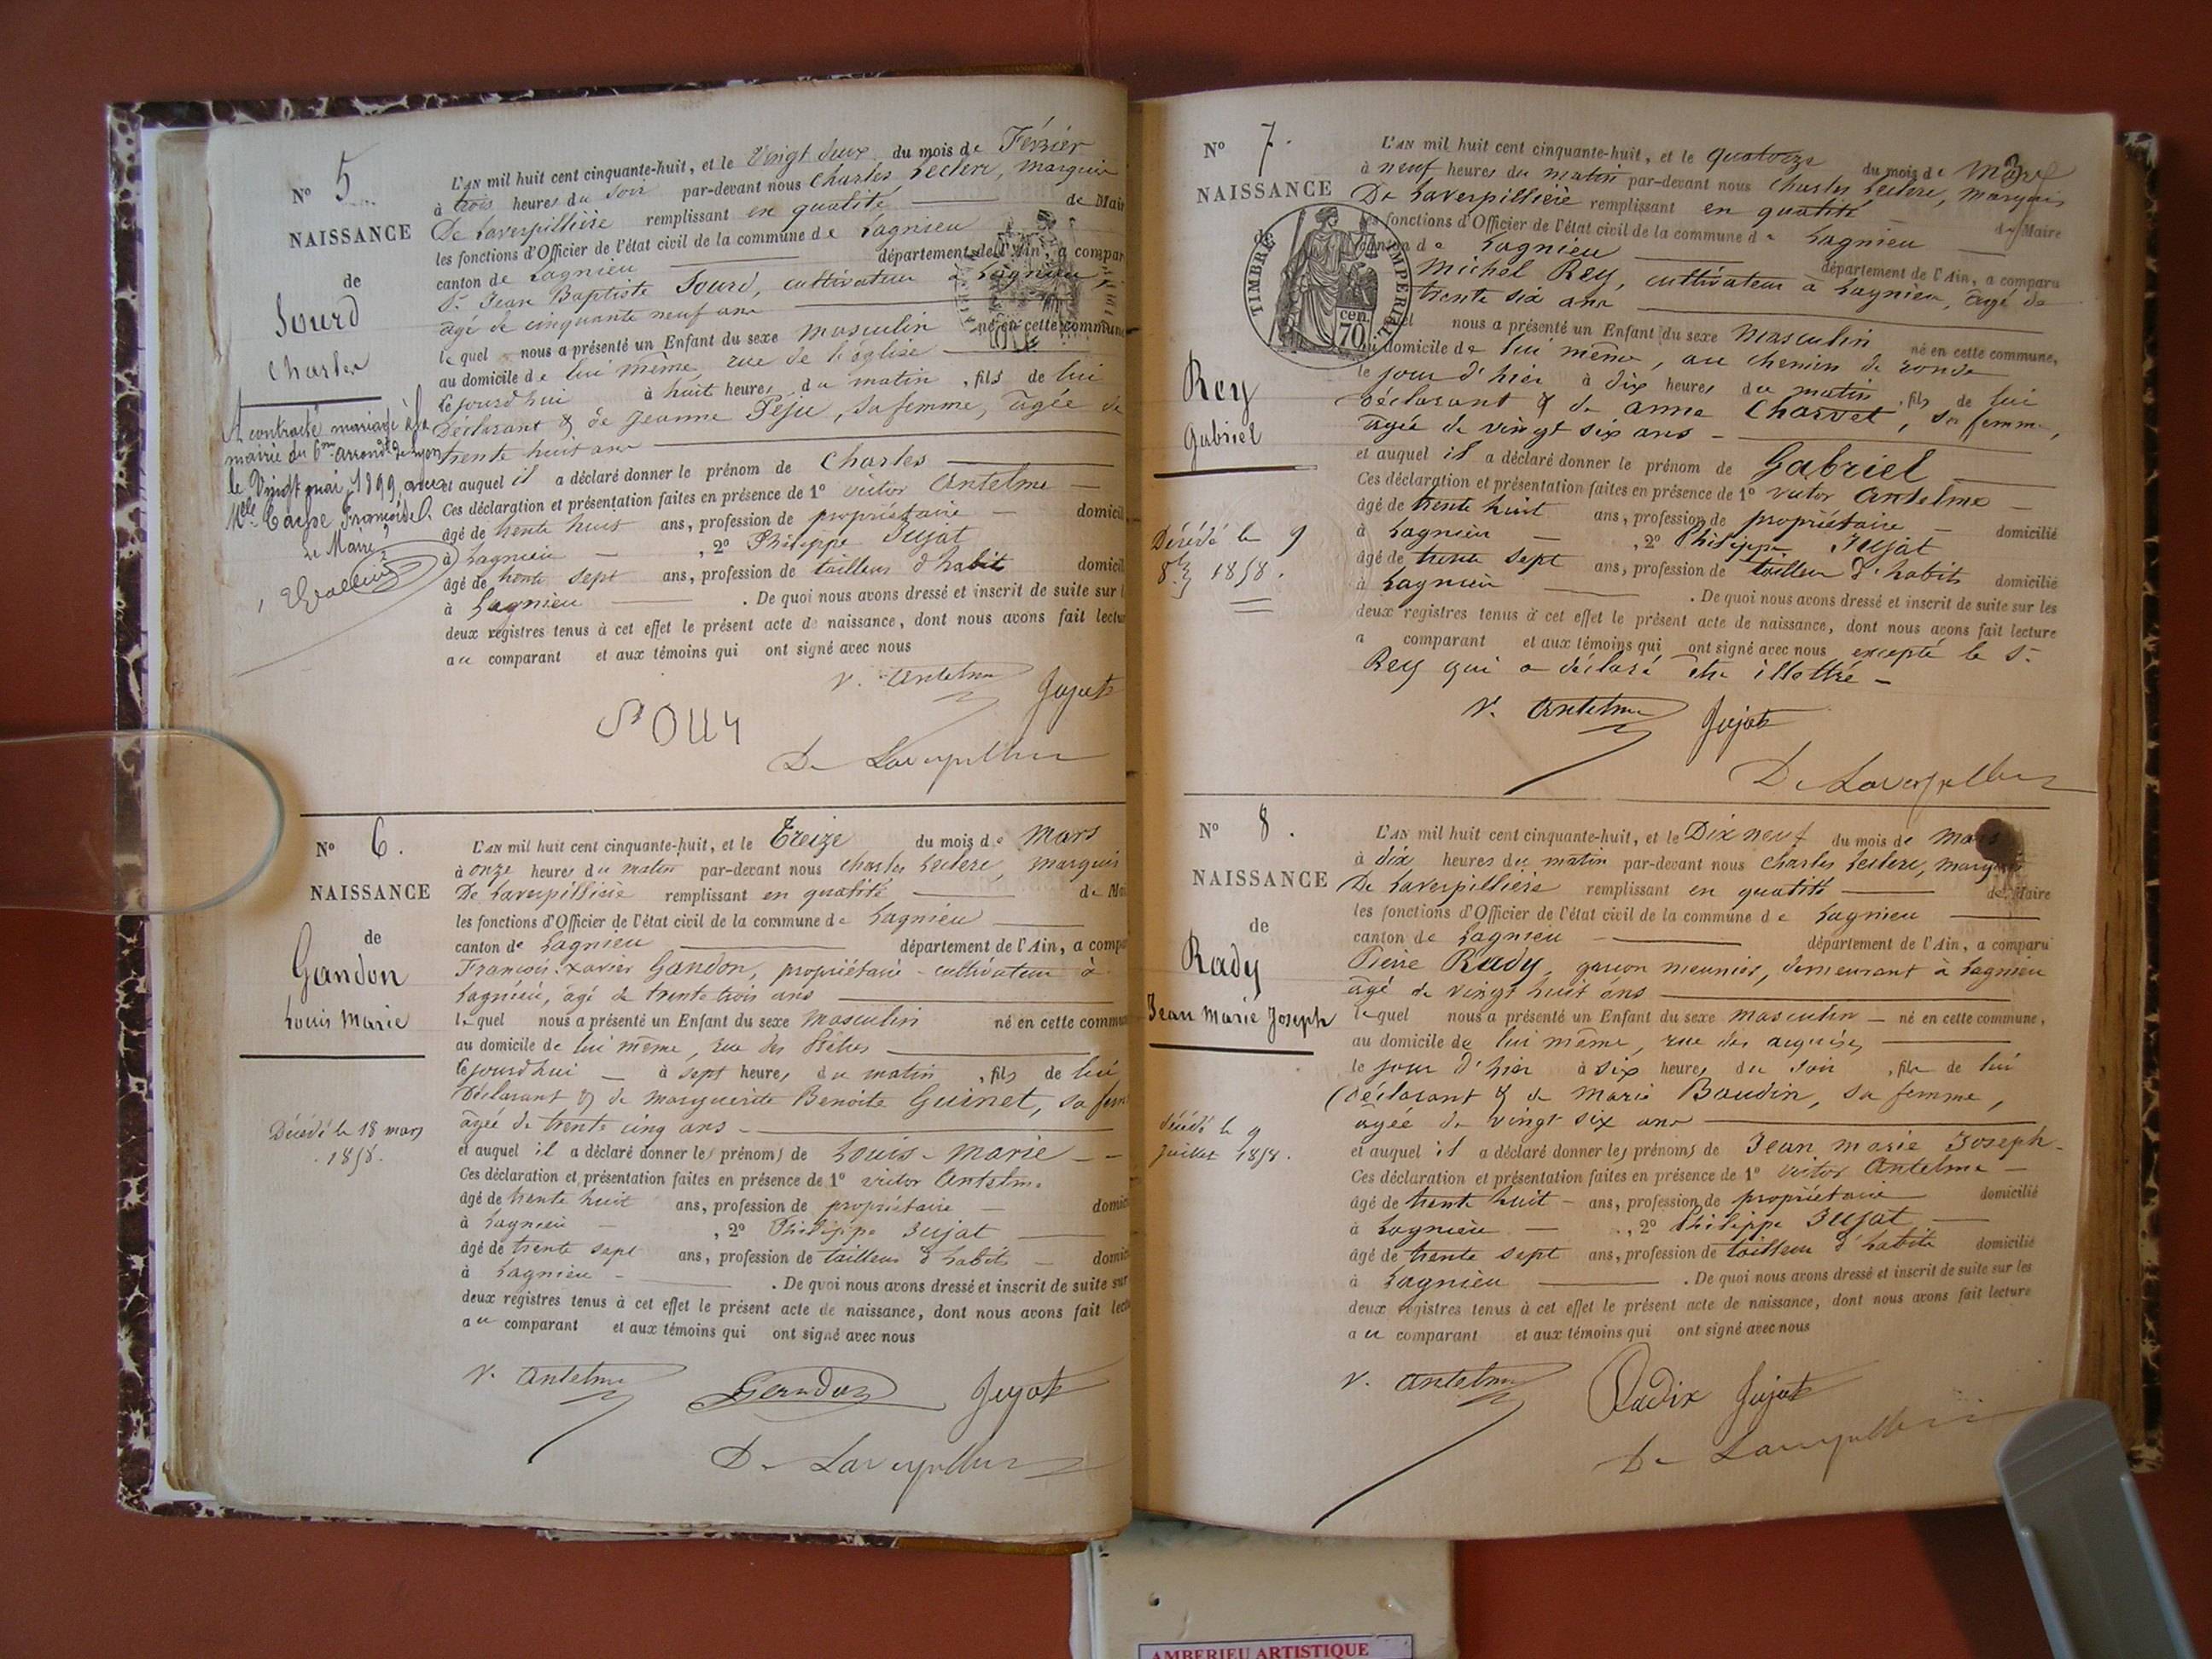 N° 5
NAISSANCE
de
Sourd
Charles
A contracté mariage à la
mairie du 6me arrondt de Lyon
le Vingt mai 1899, avec
Melle Françoise
Le Maire,
L'AN mil huit cent cinquante-huit, et le Vingt deux du mois de Février
à trois heures du soir par-devant nous Charles Leclerc, Marquis
De Laverpillière remplissant en qualité de Mair
les fonctions d'Officier de l'état civil de la commune de Lagnieu
canton de Lagnieu département de l'Ain, a compar
Sr Jean Baptiste Sourd, cultivateur à Lagnieu
âgé de cinquante neuf ans
lequel nous a présenté un Enfant du sexe masculin né en cette commune
au domicile de lui même, rue de l'église
ce jourd'hui à huit heures du matin, fils de lui
Déclarant & de Jeanne Péju, sa femme, âgée de
trente huit ans
et auquel il a déclaré donner le prénom de Charles
Ces déclaration et présentation faites en présence de 1° victor Antelme
âgé de trente huit ans, profession de propriétaire domicil
à Lagnieu , 2° Philippe Jujat
âgé de trente sept ans, profession de tailleur d'habit domicil
à Lagnieu . De quoi nous avons dressé et inscrit de suite sur l
deux registres tenus à cet effet le présent acte de naissance, dont nous avons fait lectu
au comparant et aux témoins qui ont signé avec nous
V. Antelme Jujat
Sour
De Laverpillière
N° 6.
NAISSANCE
de
Gandon
Louis Marie
Décédé le 18 mars
1858.
L'AN mil huit cent cinquante-huit, et le Treize du mois de Mars
à onze heures du matin par-devant nous Charles Leclerc, Marquis
De Laverpillière remplissant en qualité de Ma
les fonctions d'Officier de l'état civil de la commune de Lagnieu
canton de Lagnieu département de l'Ain, a compa
François-Xavier Gandon, propriétaire-cultivateur à
Lagnieu, âgé de trente trois ans
lequel nous a présenté un Enfant du sexe Masculin né en cette commun
au domicile de lui même, rue des
ce jourd'hui à sept heures du matin, fils de lui
Déclarant & de Marguerite Benoite Guinet, sa fem
âgée de trente cinq ans
et auquel il a déclaré donner les prénoms de Louis-Marie
Ces déclaration et présentation faites en présence de 1° victor Antelme
âgé de trente huit ans, profession de propriétaire domic
à Lagnieu , 2° Philippe Jujat
âgé de trente sept ans, profession de tailleur d'habits domic
à Lagnieu . De quoi nous avons dressé et inscrit de suite sur
deux registres tenus à cet effet le présent acte de naissance, dont nous avons fait lectu
au comparant et aux témoins qui ont signé avec nous
V. Antelme Gandon Jujat
De Laverpillière
N° 7.
NAISSANCE
de
TIMBRE IMPERIAL
70 cen.
Rey
Gabriel
Décédé le 9
8bre 1858.
L'AN mil huit cent cinquante-huit, et le quatorze du mois de Mars
à neuf heures du matin par-devant nous Charles Leclerc, Marquis
De Laverpillière remplissant en qualité de Maire
les fonctions d'Officier de l'état civil de la commune de Lagnieu
canton de Lagnieu département de l'Ain, a comparu
Michel Rey, cultivateur à Lagnieu, âgé de
trente six ans
lequel nous a présenté un Enfant du sexe Masculin né en cette commune,
au domicile de lui même, au chemin de ronde
le jour d'hier à dix heures du matin, fils de lui
Déclarant & de Anne Charvet, sa femme,
âgée de vingt six ans
et auquel il a déclaré donner le prénom de Gabriel
Ces déclaration et présentation faites en présence de 1° victor Antelme
âgé de trente huit ans, profession de propriétaire domicilié
à Lagnieu , 2° Philippe Jujat
âgé de trente sept ans, profession de tailleur d'habits domicilié
à Lagnieu . De quoi nous avons dressé et inscrit de suite sur les
deux registres tenus à cet effet le présent acte de naissance, dont nous avons fait lecture
a comparant et aux témoins qui ont signé avec nous excepté le Sr
Rey qui a déclaré être illettré
V. Antelme Jujat
De Laverpillière
N° 8.
NAISSANCE
de
Rady
Jean Marie Joseph
décédé le 9
Juillet 1858.
L'AN mil huit cent cinquante-huit, et le Dix neuf du mois de Mars
à dix heures du matin par-devant nous Charles Leclerc, Marquis
De Laverpillière remplissant en qualité de Maire
les fonctions d'Officier de l'état civil de la commune de Lagnieu
canton de Lagnieu département de l'Ain, a comparu
Pierre Rady, garçon meunier, demeurant à Lagnieu
âgé de vingt huit ans
lequel nous a présenté un Enfant du sexe masculin né en cette commune,
au domicile de lui même, rue des
le jour d'hier à six heures du soir, fils de lui
déclarant & de Marie Baudin, sa femme,
âgée de vingt six ans
et auquel il a déclaré donner les prénoms de Jean Marie Joseph
Ces déclaration et présentation faites en présence de 1° Victor Antelme
âgé de trente huit ans, profession de propriétaire domicilié
à Lagnieu , 2° Philippe Jujat
âgé de trente sept ans, profession de tailleur d'habits domicilié
à Lagnieu . De quoi nous avons dressé et inscrit de suite sur les
deux registres tenus à cet effet le présent acte de naissance, dont nous avons fait lecture
au comparant et aux témoins qui ont signé avec nous
V. Antelme Radix Jujat
De Laverpillière
AMBERIEU ARTISTIQUE